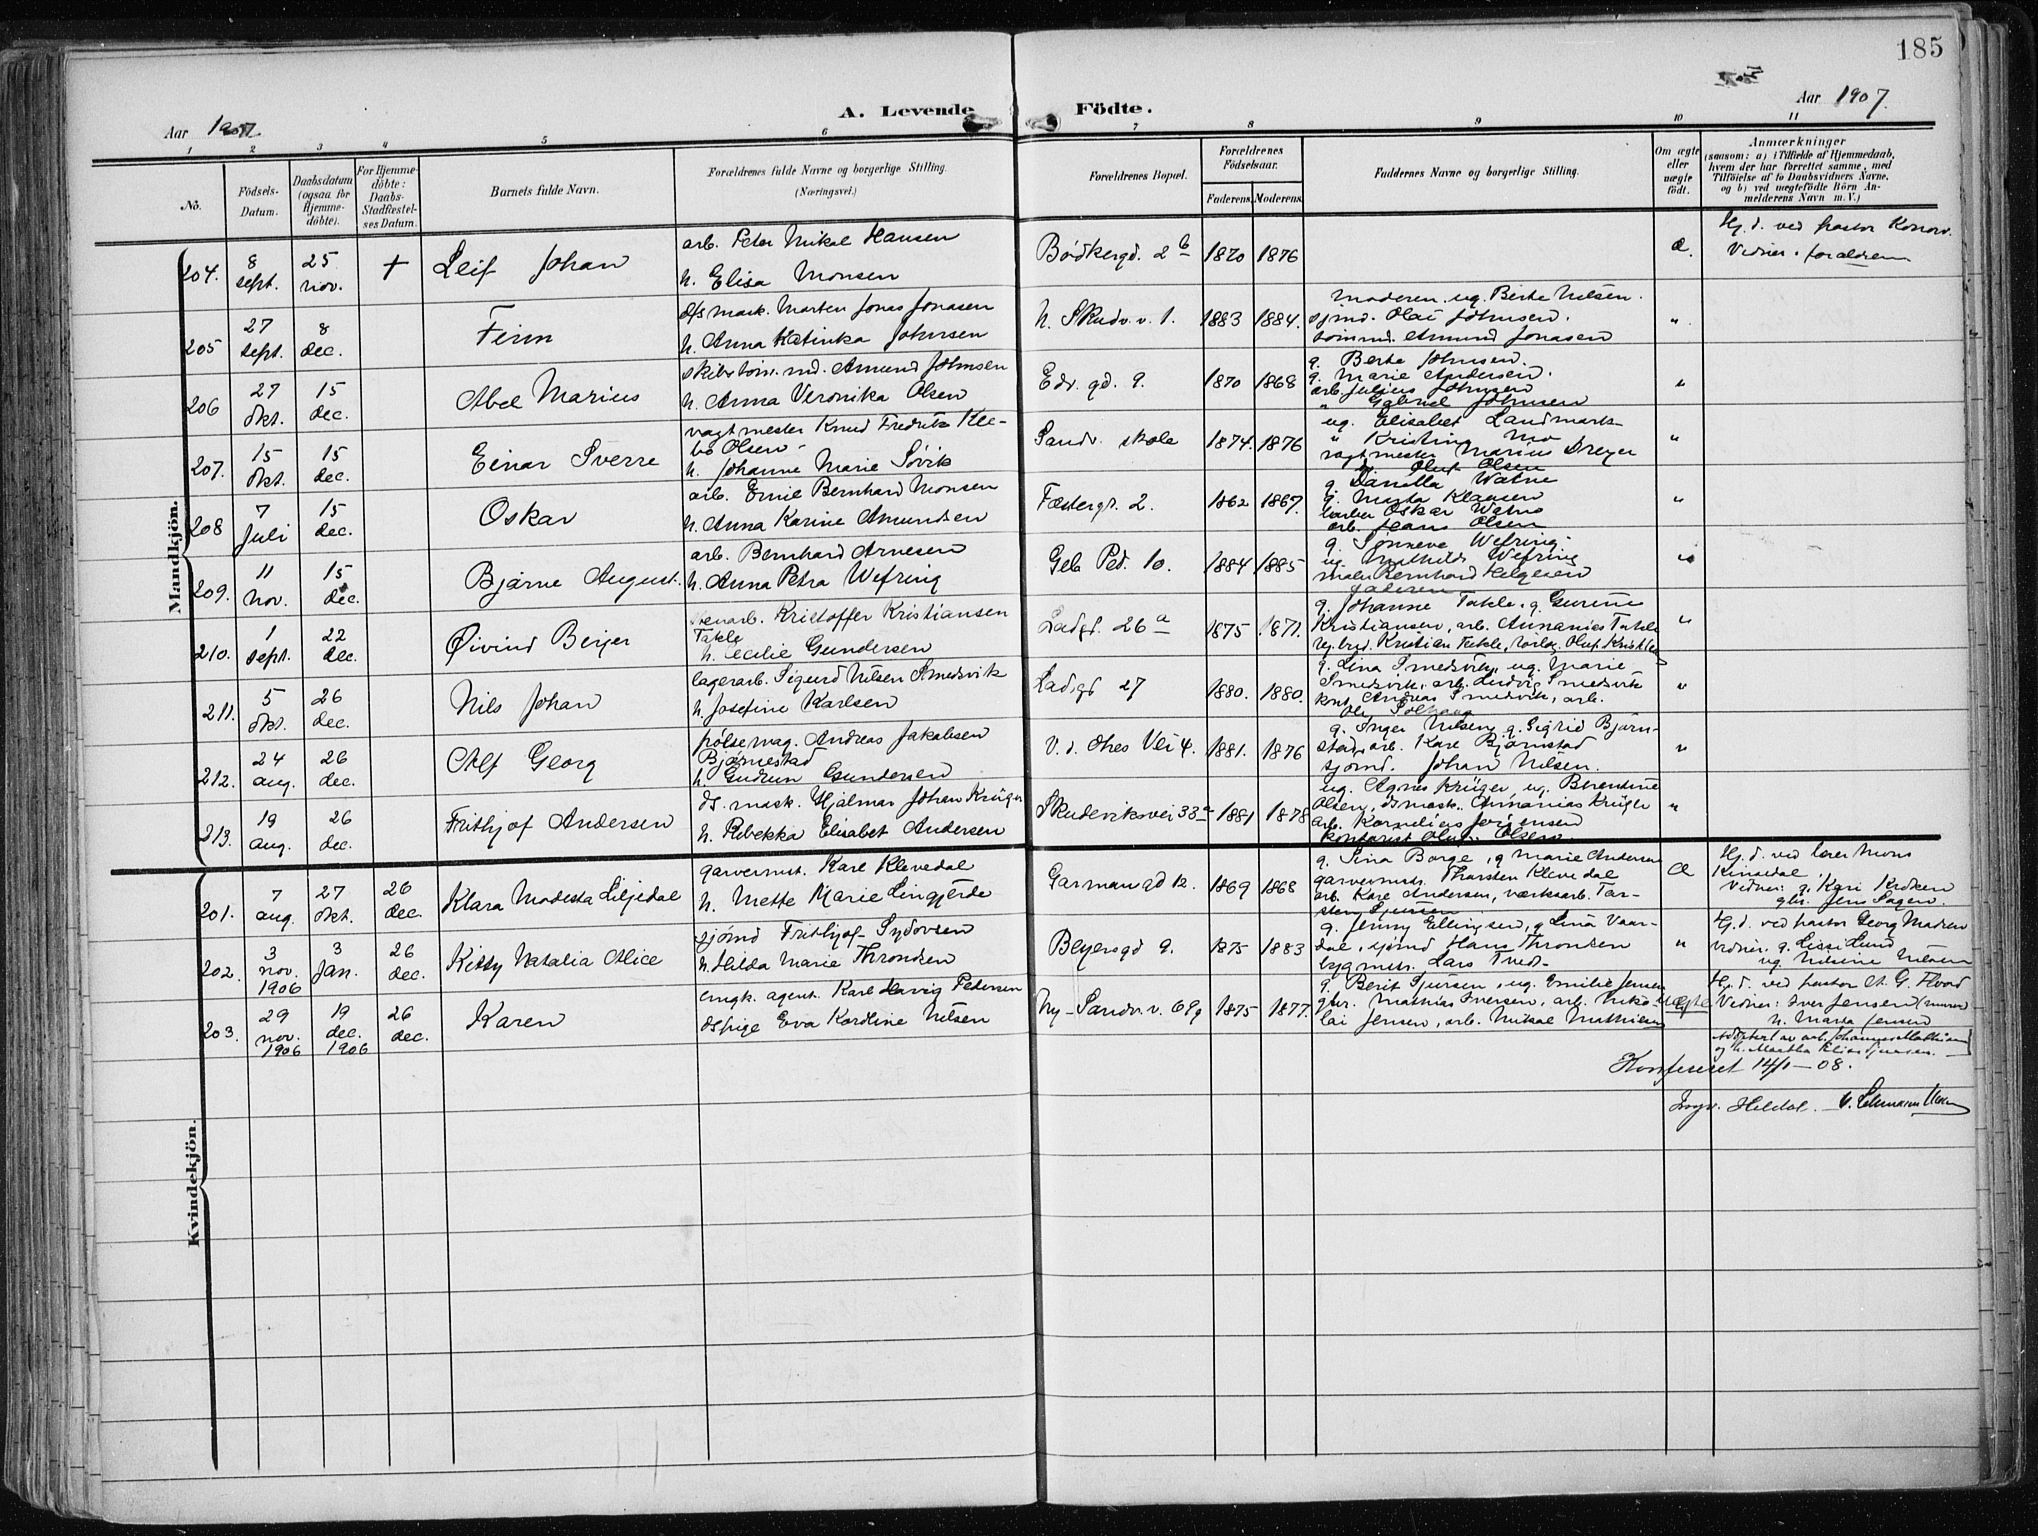 185
Aar 1907.
A. Levende Födte.
Aar 1907.
1 2 3 4 5 6 7 8 9 10 11
No.
Födsels-Datum.
Daabsdatum (ogsaa for Hjemme-döbte).
For Hjemme-döbte: Daabs-Stadfæstel-ses Datum.
Barnets fulde Navn.
Forældrenes fulde Navne og borgerlige Stilling.
(Næringsvei.)
Forældrenes Bopæl.
Forældrenes Födselsaar.
Faderens. Moderens.
Faddernes Navne og borgerlige Stilling.
Om ægte eller uægte födt.
Anmærkninger
(saasom: a) i Tilfælde af Hjemmedaab,
hvem der har forrettet samme, med
Tilföielse af to Daabsvidners Navne,
og b) ved uægtefödte Börn An-
melderens Navn m. V.)
Mandkjön.
204. 8 sept. 25 nov. † Leif Johan
arb. Peter Mikal Hansen
h. Elisa Monsen
Bødkergd. 2b 1870 1876 æ.
Hj. d. ved pastor
Vidner: forældrene
205 27 sept. 8 dec. Finn
Mork. Morten Jonas Jonasen
h. Anna Katinka Johnsen
N. Skudv. v. 1. 1883 1884.
Moderen, ug. Berte Nilsen.
sjmd. Olai Johnsen.
tømmd. Amund Jonasen "
206 27 okt. 15 dec. Abel Marius
skibstøm. md. Amund Johnsen
h. Anna Veronika Olsen
Edv. gd. 9. 1870 1868
g. Berte Johnsen.
g. Marie Andersen.
arb. Julius Johnsen
" Gabriel Johnsen "
207. 15 okt. 15 dec. Einar Sverre
vagtmester Knud Fredrik Kle-
bo Olsen
h. Johanne Marie Søvik
Sandv. skole 1874. 1876
ug. Elisabet Landmark
" Kristine Mo
vagtmester Marius Dreyer
Oluf Olsen "
208 7 Juli 15 dec. Oskar
arb. Emil Bernhard Monsen
h. Anna Karine Amundsen
Fæstergt. 2. 1862 1867.
g. Daniella Watne
g. Marta Klausen
barber Oskar Watne
arb. Jens Olsen "
209. 11 nov. 15 dec. Bjarne August.
arb. Bernhard Arnesen
h. Anna Petra Wefring
Geb. Ped. 10. 1884 1885
g. Sønneve Wefring
ug. Mathilde Wefring
maler Bernhard Helgesen
faderen "
210. 1 sept. 22 dec. Øivind Berjer
Kristoffer Kristiansen
Takle
h. Cecilie Gundersen
Ladgd. 26a 1875 1871.
g. Johanne Takle, g. Gurine
Kristiansen, arb. Annanias Takle
Kristian Takle, Oluf "
211. 5 okt. 26 dec. Nils Johan
lagerarb. Sigurd Nilsen Smedsvik
h. Josefine Karlsen
Ladegd 27 1880. 1880.
g. Lina Smedsvik, ug. Marie
Smedsvik, arb. Ludvig Smedsvik
Andreas Smedsvik, arb.
Ole Solhaug "
212. 24 aug. 26 dec. Alf Georg
pølsemag. Andreas Jakobsen
Bjørnestad
h. Gudrun Gundersen
V. d. Ohes Vei 4. 1881. 1876
g. Inger Nilsen, g. Sigrid Bjørn-
stad, arb. Kare Bjørnstad
sjømd. Johan Nilsen. "
213. 19 aug. 26 dec. Frithjof Andersen
ds. mask. Hjalmar Johan Krüger
h. Rebekka Elisabet Andersen
Skudeviksvei 33a 1881 1878
ug. Agnes Krüger, ug. Berendine
Olsen, dsmask. Annanias Krüger
arb. Kornelius Jørgensen
kontorist Oluf Olsen "
Kvindekjön.
201. 7 aug. 27 okt. 26 dec. Klara Modesta Liljedal
garvermst. Karl Klevedal
h. Mette Marie Lingjerde
Garmangd 12. 1869 1868
g. Sina Borge, g Marie Andersen
garvermstr. Thorsten Klevedal
arb. Karl Andersen, værksarb. Tor-
sten Sjursen æ
Hj. d. ved lærer Mons
Kinsedal.
Vidner: g. Kari Kroken
gbr. Jens Sagen.
202. 3 nov. 1906 3 Jan. 26 dec. Kitty Natalia Alice
sjømd Frithjof Sydovsen
h. Hilda Marie Throndsen
Beyersgd 9. 1875 1883
g. Jenny Ellingsen, g Lina Vaar-
dal, sjømd Hans Thronsen
bygmstr. Lars Tveit "
Hj. d. ved pastor Georg Madsen
vidner: g. Lissi Lund
ug. Nilsine Nilsen
203. 29 nov. 1906 19 dec. 1906 26 dec. Karen
emgk. agent. Karl Havig Pedersen
Pige Eva Kardine Nilsen
Ny-Sandv. v. 69g 1875 1877.
g. Berit Sjursen, ug. Emilie Jensen
gbr. Mathias Iversen, arb. Niko-
lai Jensen, arb. Mikal Mathiesen uægte
Hj. d. ved pastor A. G. Hvod
Vidner: Iver Jensen (murer
h. Marta Jensen
Adoptert av arb. Johannes Mathiesen
og h. Martha Elise Sjursen.
Konfereret 14/1 – 08.
Ingv. Heldal.